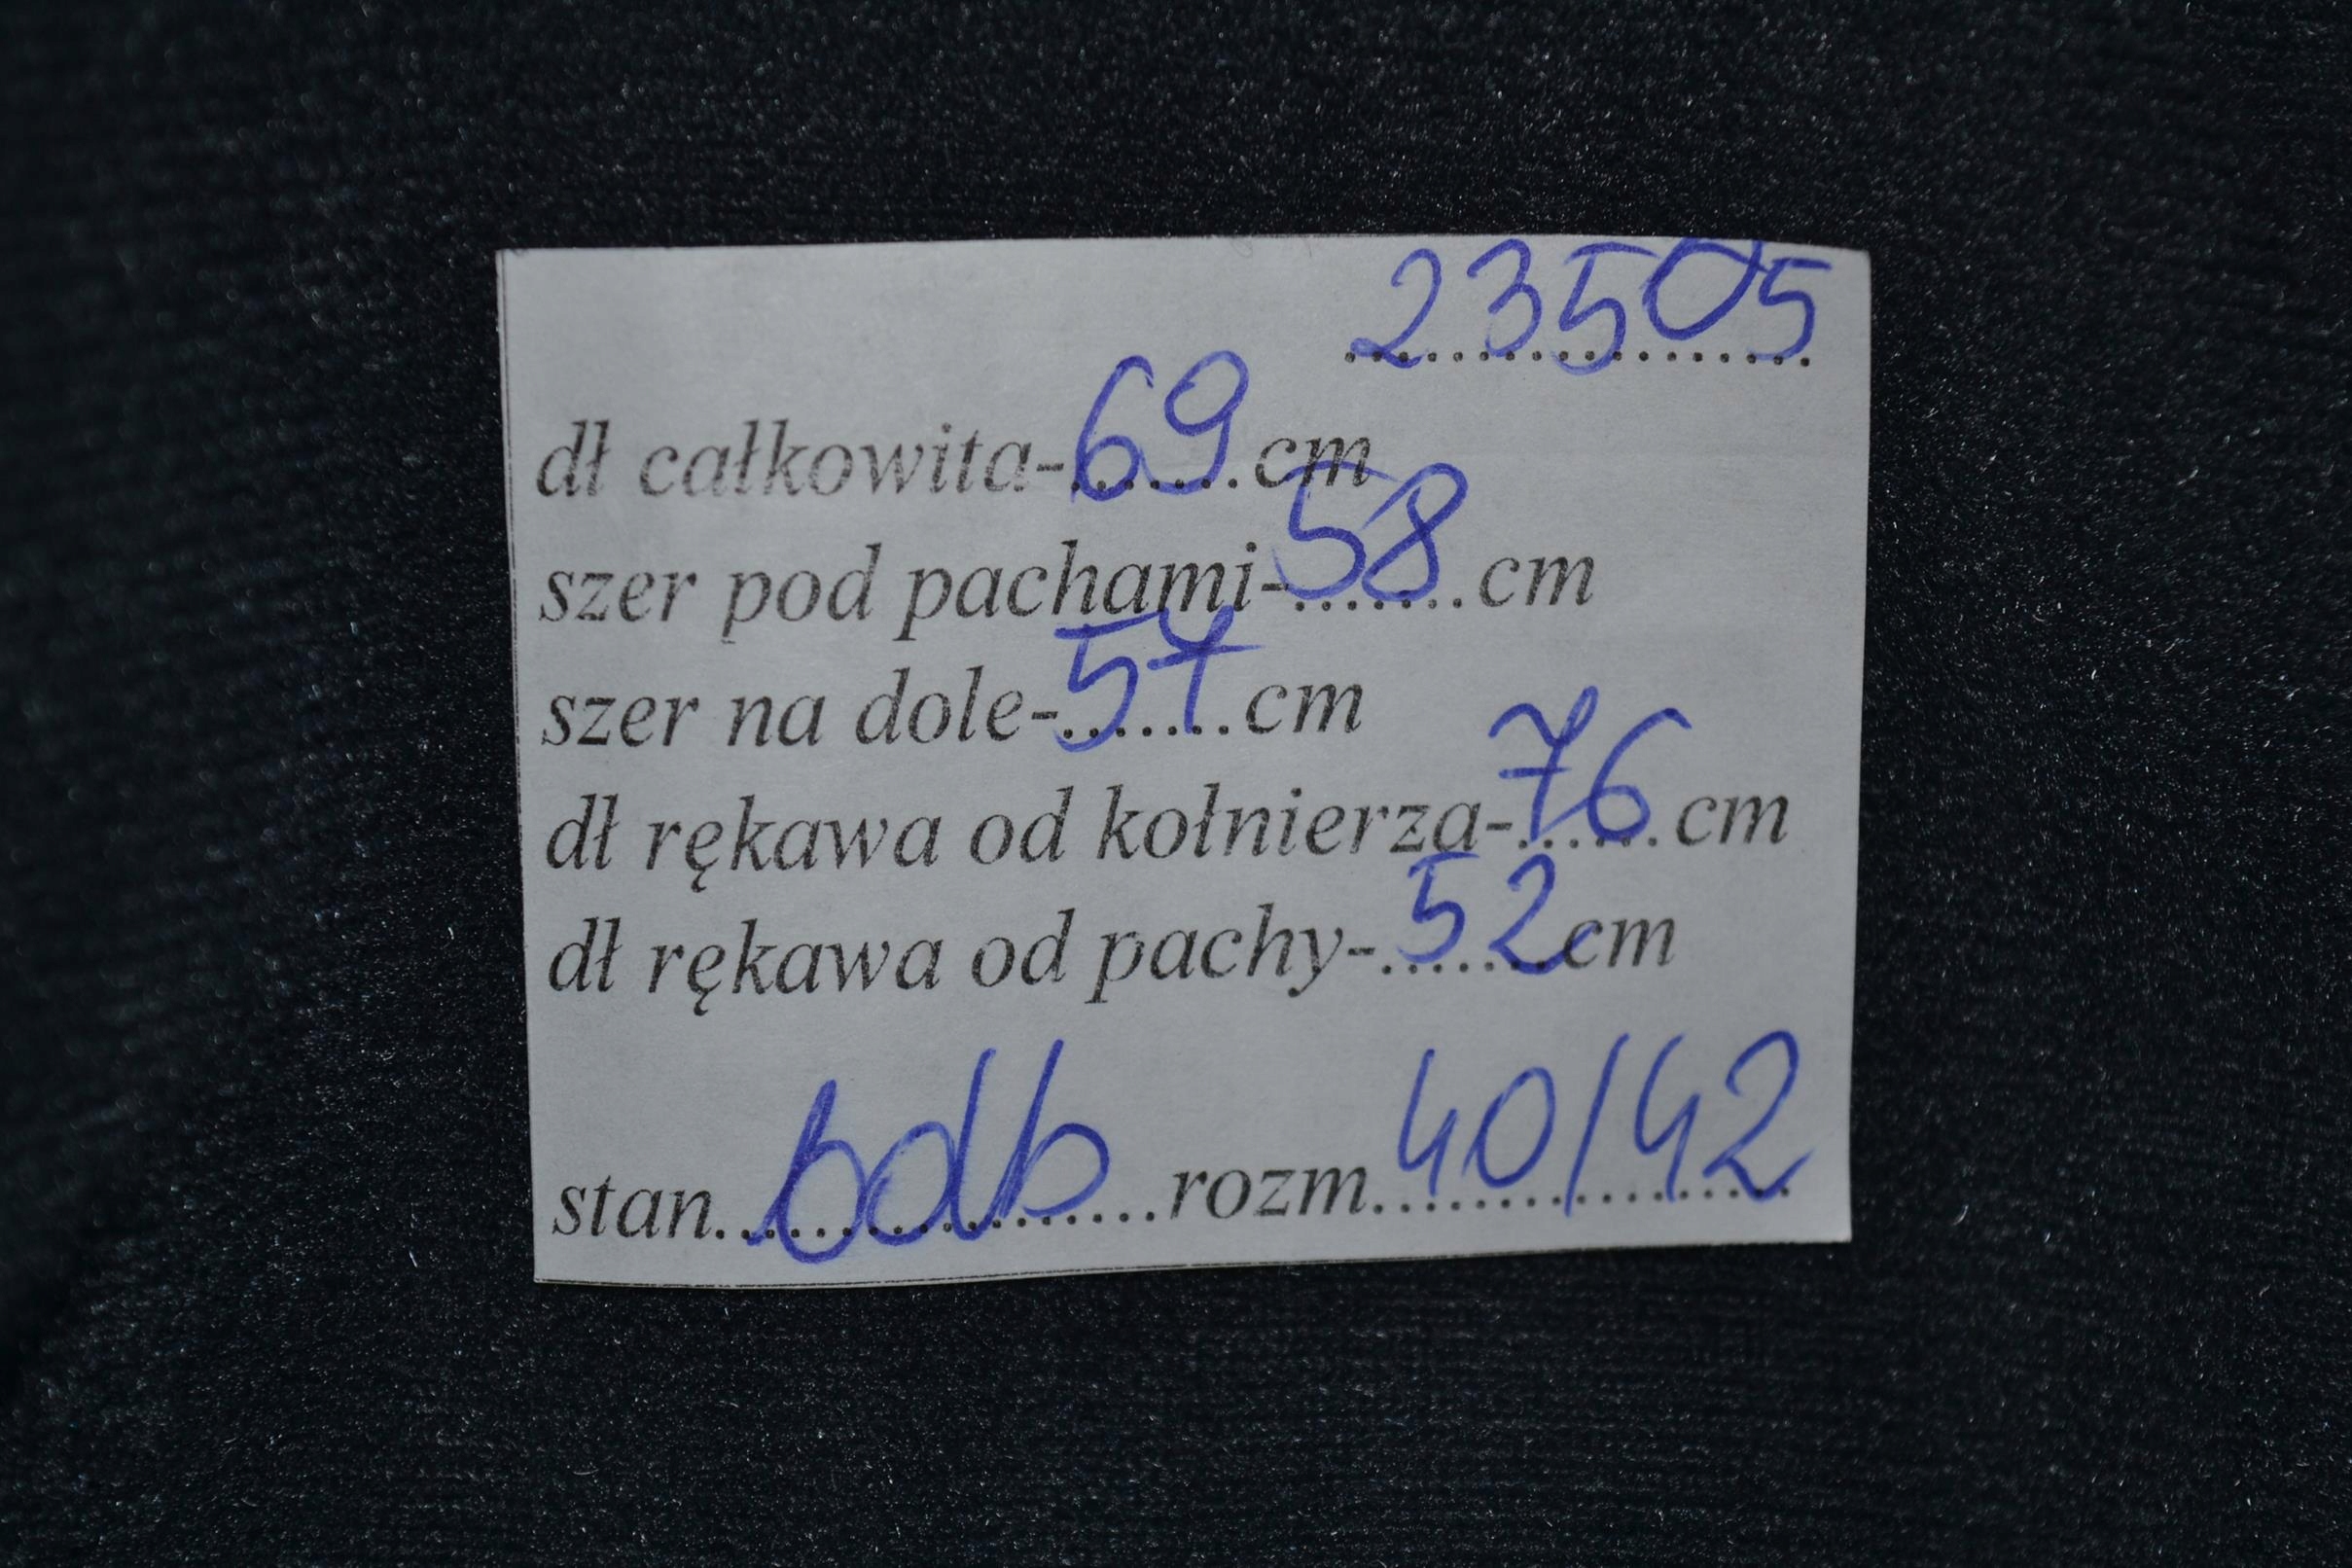 23505
dł całkowita-69cm
szer pod pachami-58cm
szer na dole-57cm
dł rękawa od kołnierza-76cm
dł rękawa od pachy-52cm
stan..bdb..rozm.40/42